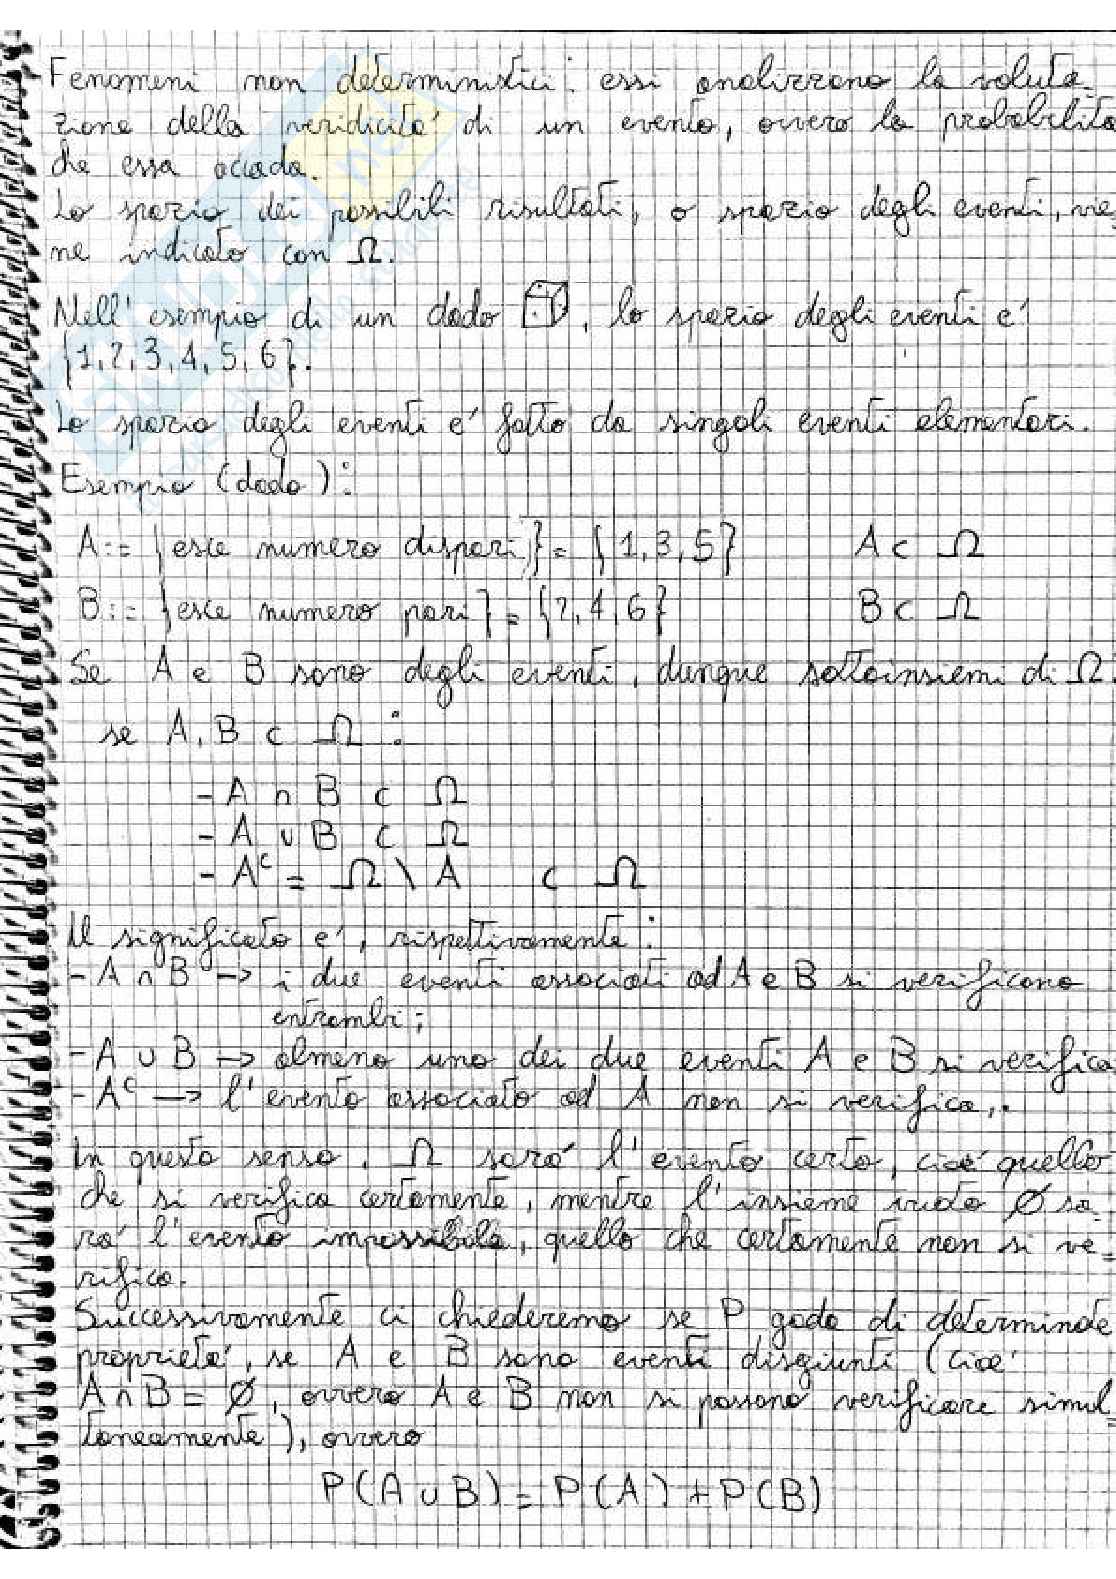 Fenomeni non deterministici: essi analizzano la valuta-
zione della veridicità di un evento, ovvero la probabilità
che essa accada.
Lo spazio dei possibili risultati, o spazio degli eventi, vie-
ne indicato con Ω.
Nell'esempio di un dado , lo spazio degli eventi e'
{1,2,3,4,5,6}.
Lo spazio degli eventi e' fatto da singoli eventi elementari.
Esempio (dado):
A:= {esce numero dispari} = {1,3,5} A ⊂ Ω
B:= {esce numero pari} = {2,4,6} B ⊂ Ω
Se A e B sono degli eventi, dunque sottoinsiemi di Ω:
se A, B ⊂ Ω :
- A ∩ B ⊂ Ω
- A ∪ B ⊂ Ω
- Aᶜ = Ω \ A ⊂ Ω
Il significato e', rispettivamente:
- A ∩ B → i due eventi associati ad A e B si verificano
entrambi;
- A ∪ B → almeno uno dei due eventi A e B si verifica
- Aᶜ → l'evento associato ad A non si verifica,.
In questo senso, Ω sara' l'evento certo, cioe' quello
che si verifica certamente, mentre l'insieme vuoto Ø sa-
ra' l'evento impossibile, quello che certamente non si ve-
rifica.
Successivamente ci chiederemo se P goda di determinate
proprieta', se A e B sono eventi disgiunti (cioe'
A ∩ B = Ø, ovvero A e B non si possono verificare simul-
taneamente), ovvero
P(A ∪ B) = P(A) + P(B)